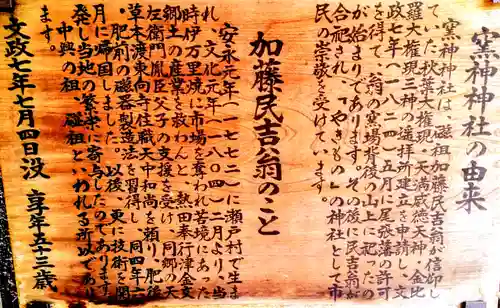 窯神神社の由来
窯神神社は、磁祖加藤民吉翁が信仰し
ていた秋葉大権現、天満威徳天神、金比
羅大権現三神の遥拝所建立を申請し、文
政七年(一八二四)五月に尾張藩の許可
を得て、翁の窯場背後の山上に祀ったの
が始まりであります。その後に民吉翁が
合祀され、「やきもの」の神社として市
民の崇敬を受けています。
加藤民吉翁のこと
安永元年(一七七二)に瀬戸村で生ま
れ、文化元年(一八〇四)二月より、当
時伊万里焼に市場を奪われ苦境にあった
郷土の産業を救わんと、熱田奉行津金文
左衛門胤臣父子の支援を受け、同郷の天
草本渡東向寺住職天中和尚を頼り、肥後
、肥前の磁器製造法を習得し、同四年六
月に帰国しました。以後、更に技術を開
発し当地の繁栄に寄与したのであります。
中興の祖、磁祖といわれる所以であ
ます。
文政七年七月四日没 享年五十三歳